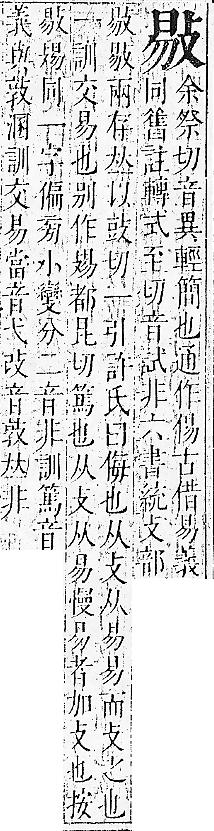 敡
余祭切音異輕簡也通作傷古借易義
同舊註轉式至切音試非六書統攴部
敡敭兩存𠀤以豉切一引許氏曰侮也从攴从易易而攴之也
一訓交易也别作敭都昆切篤也从攴从易慢易者加攴也按
敡敭同一字偏旁小變分二音非訓篤音
義與敦溷訓交易當音弋攺音敦𠀤非